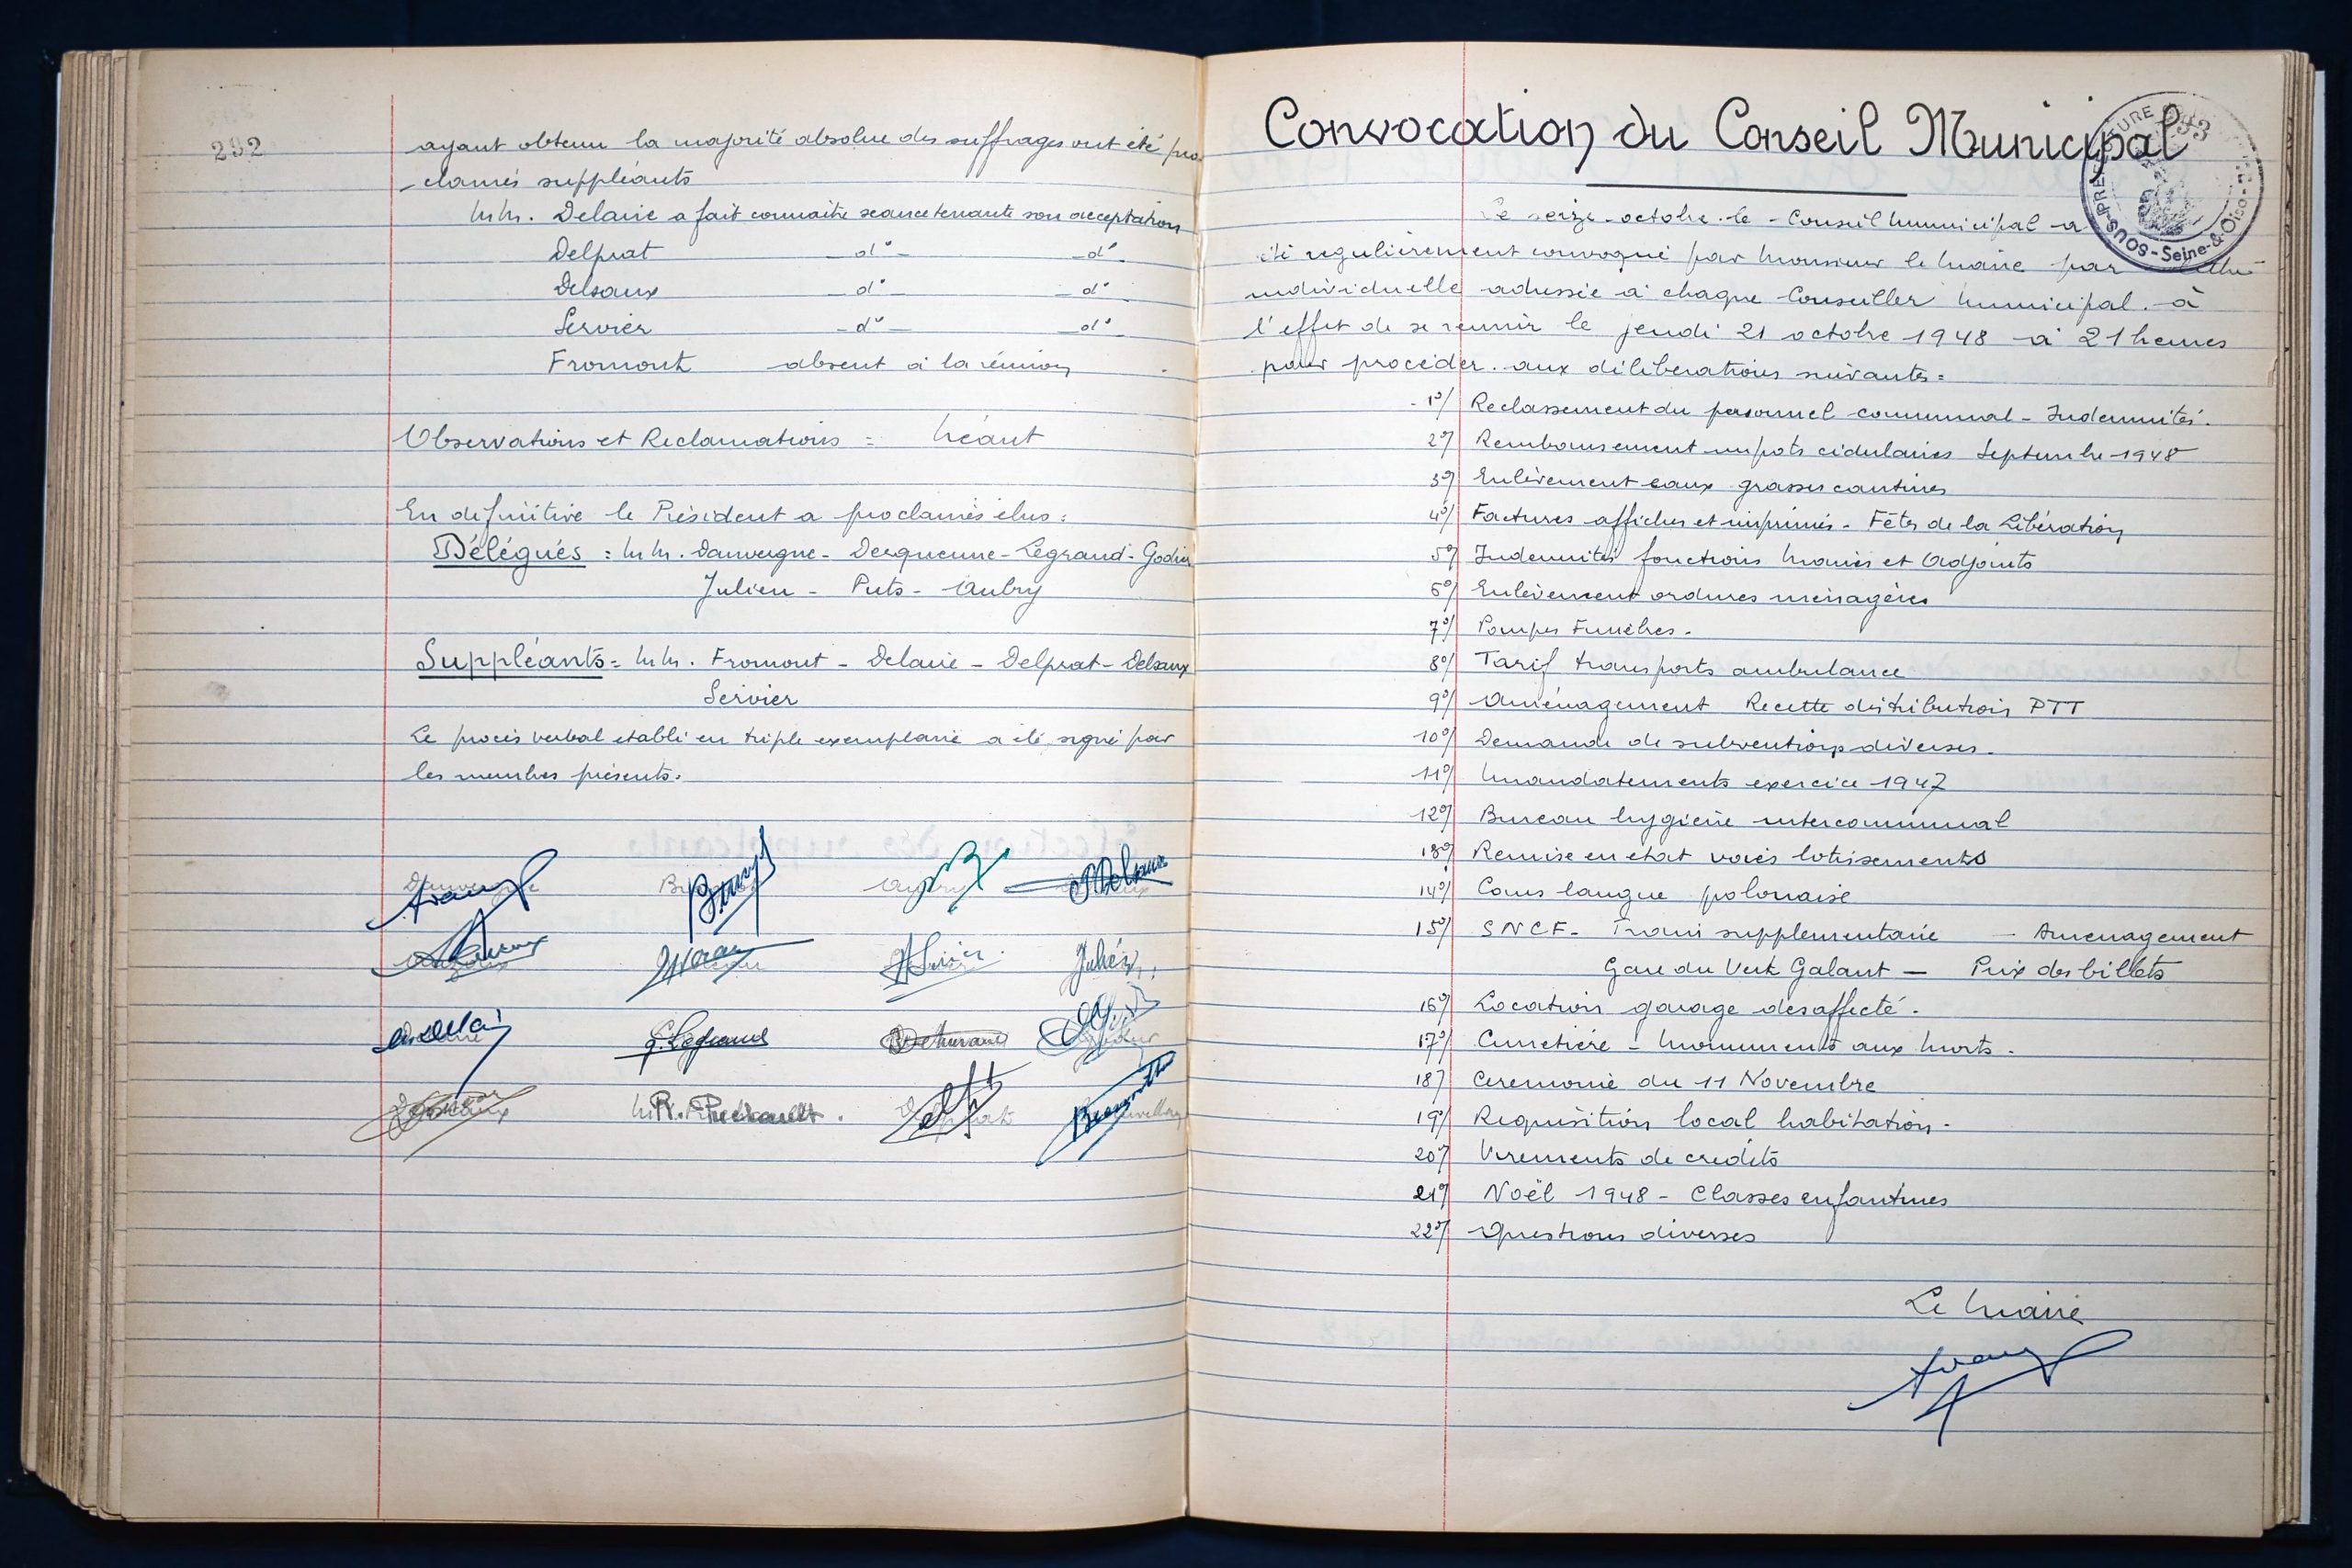 292
ayant obtenu la majorité absolue des suffrages ont été pro
-clamés suppléants
MM. Delaire a fait connaitre seance tenante son acceptation
Delprat -d°- -d°-
Delsaux -d°- -d°-
Servier -d°- -d°-
Fromont absent à la réunion
Observations et Reclamations = Néant
En definitive le Président a proclamés élus :
Délégués : MM. Dauvergne - Desquenne - Legrand - Godin
Julien - Puts - Aubry
Suppléants = MM. Fromont - Delaire - Delprat - Delsaux
Servier
Le procès verbal etabli en triple exemplaire a été signé par
les membres présents.
G. Legrand
Convocation du Conseil Municipal
293
SOUS-PREFECTURE
Seine-&-Oise
Le seize octobre le Conseil Municipal a
été regulièrement convoqué par Monsieur le Maire par lettre
individuelle adressée à chaque Conseiller Municipal à
l'effet de se reunir le jeudi 21 octobre 1948 à 21 heures
pour procéder aux déliberations suivantes =
1°/ Reclassement du personnel communal - Indemnités.
2°/ Remboursement impots cédulaires Septembre 1948
3°/ Enlèvement eaux grasses cantines
4°/ Factures affiches et imprimés - Fêtes de la Libération
5°/ Indemnités fonctions Maires et Adjoints
6°/ Enlèvement ordures ménagères
7°/ Pompes Funèbres.
8°/ Tarif transports ambulance
9°/ Aménagement Recette distribution PTT
10°/ Demande de subventions diverses.
11°/ Mandatements exercice 1947
12°/ Bureau hygiène intercommunal
13°/ Remise en etat voies lotissements
14°/ Cours langue polonaise
15°/ SNCF - Train supplementaire - Aménagement
Gare du Vert Galant - Prix des billets
16°/ Location garage desaffecté.
17°/ Cimetière - Monuments aux Morts.
18°/ Ceremonie du 11 Novembre
19°/ Requisition local habitation.
20°/ Virements de credits
21°/ Noël 1948 - Classes enfantines
22°/ Questions diverses
Le Maire